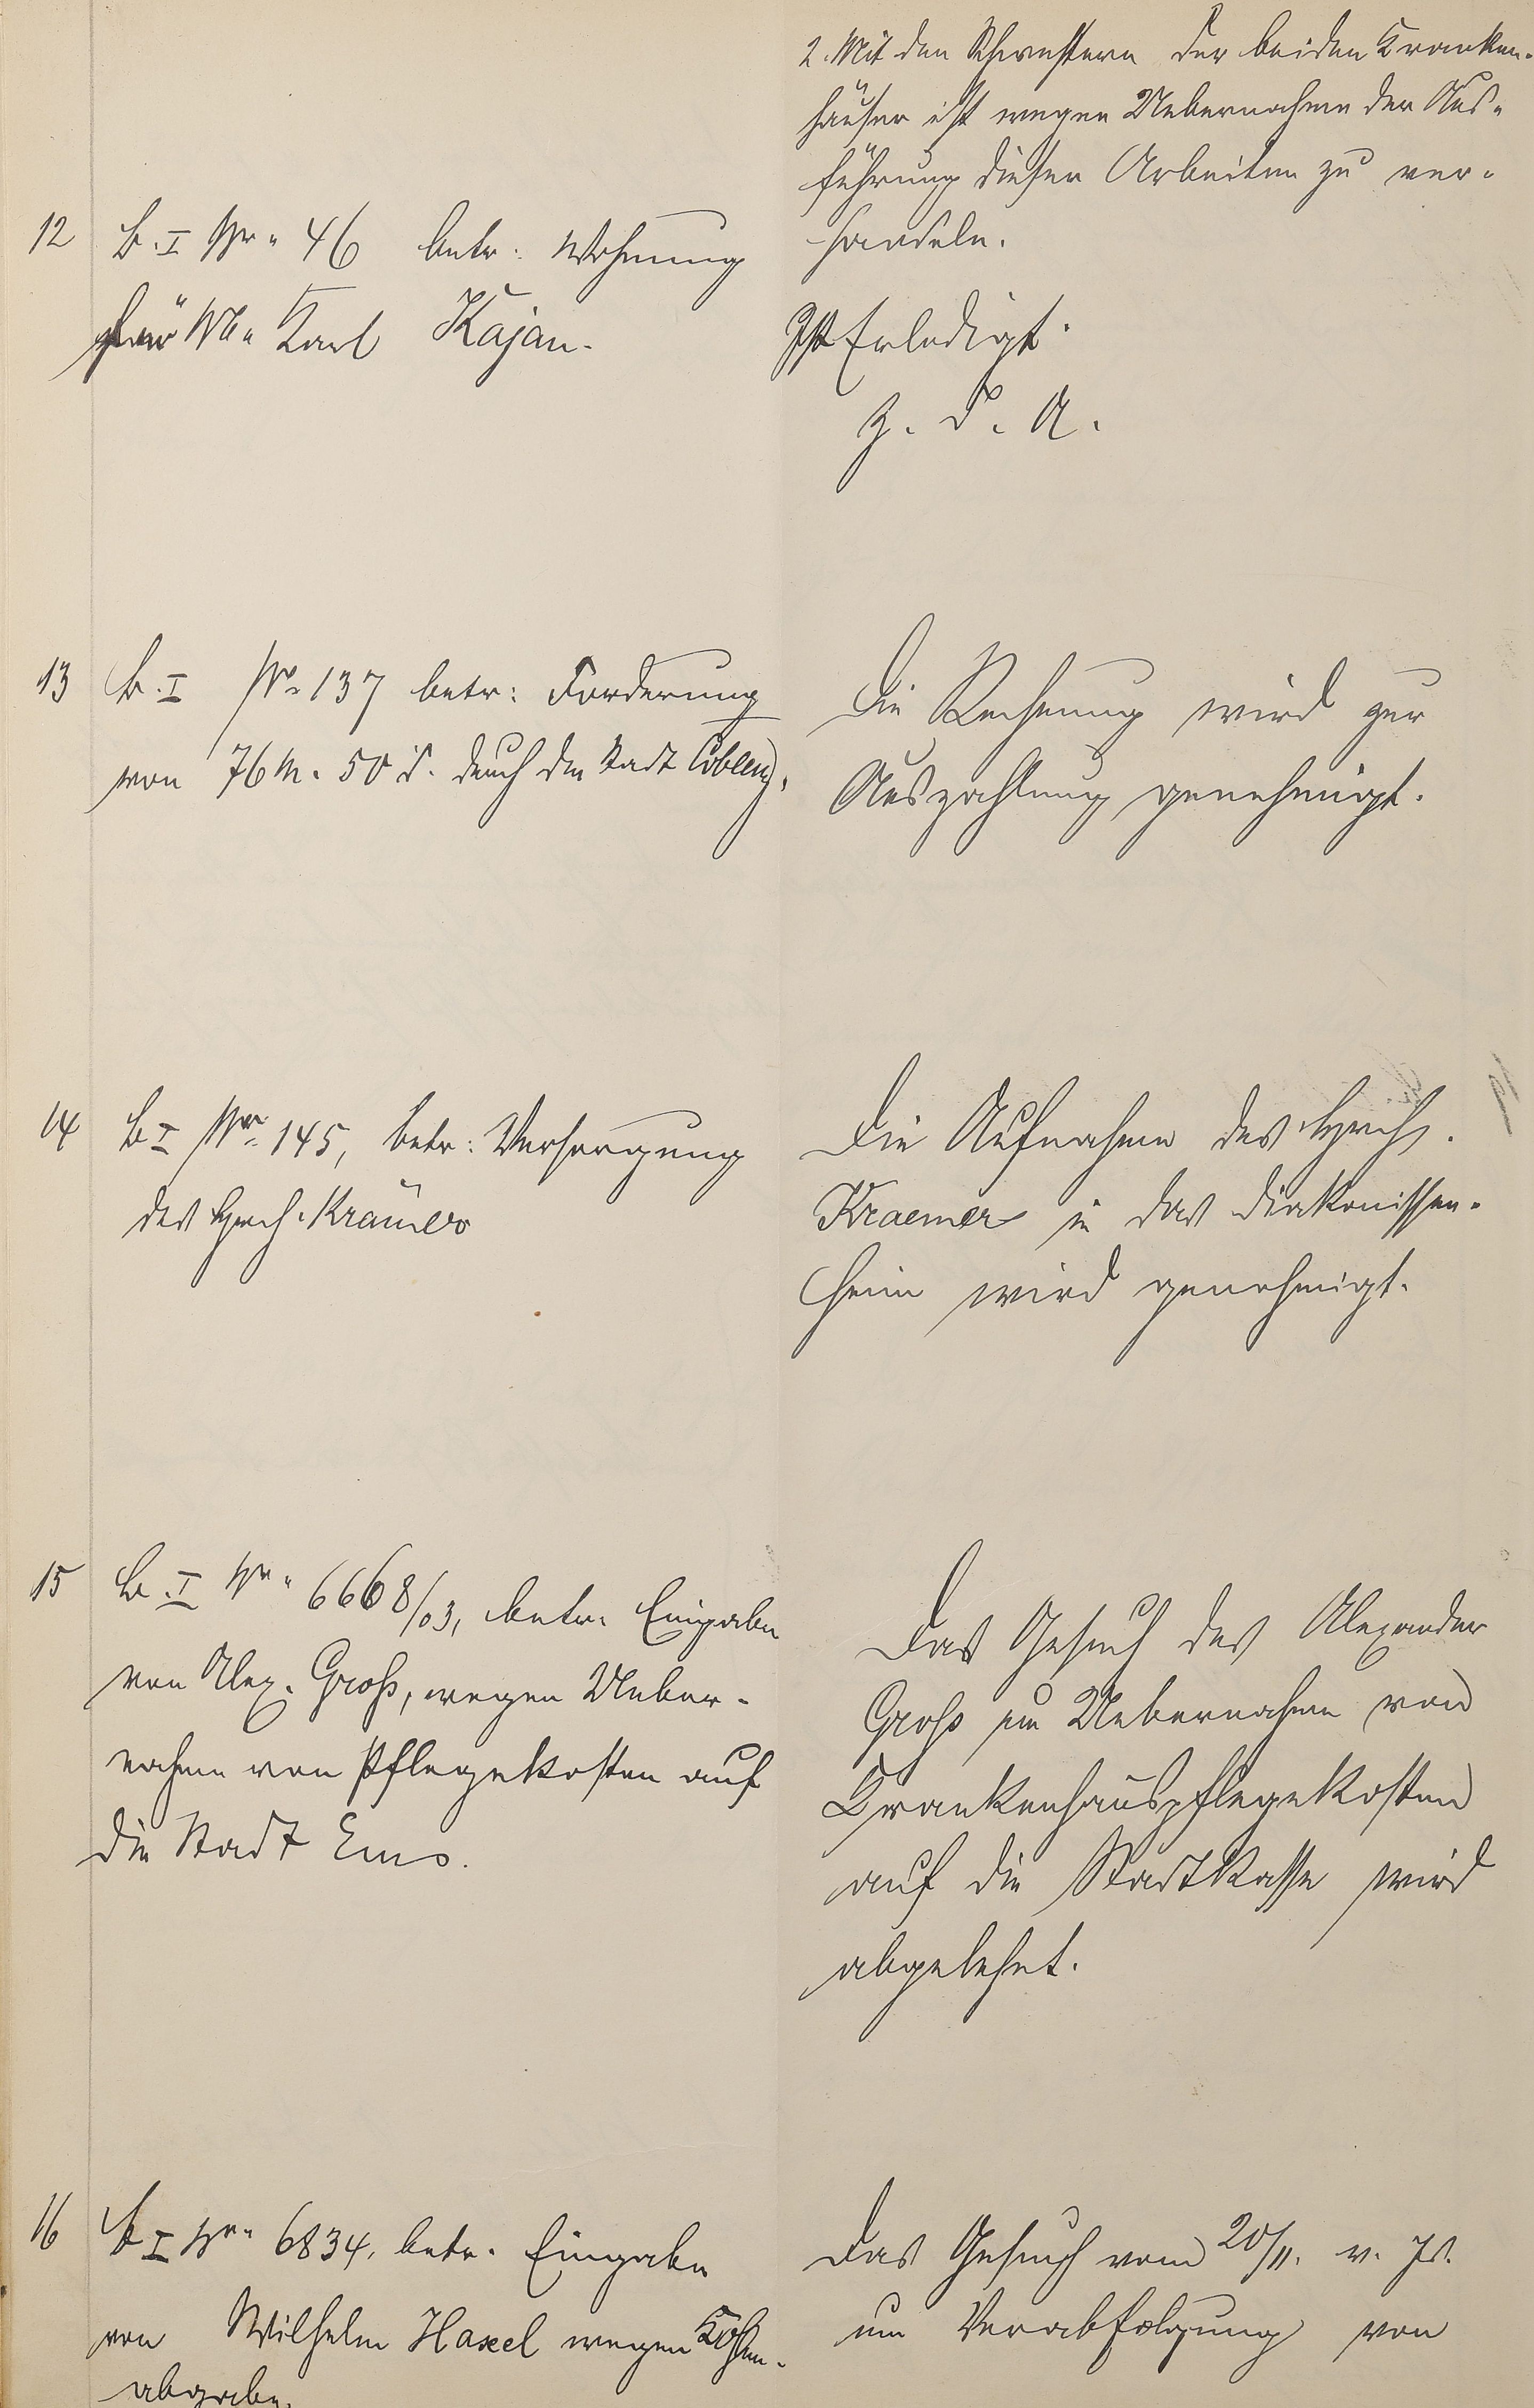 2. Mit den Schwestern der beiden Kranken-
häuser ist wegen Uebernahme der Aus-
führung dieser Arbeiten zu ver-
handeln.
12 B. I Nr. 46 betr. Wohnung
für Karl Kajan.
Ist Erledigt.
z. d. A.
13 B. I Nr. 137 betr: Forderung
von 76 M. 50 d. durch die Stadt Coblenz.
Die Rechnung wird zur
Auszahlung genehmigt.
14 B I Nr. 145, betr: Versorgung
des Hch. Krämer
Die Aufnahme des
Kraemer in das Diakonissen-
heim wird genehmigt.
15 B. I Nr. 6668/03, betr. Eingabe
von Alex. Groß, wegen Ueber-
nahme von Pflegekosten auf
die Stadt Ems.
Das Gesuch des Alexander
Groß um Uebernahme von
Krankenhauspflegekosten
auf die Stadtkasse wird
abgelehnt.
16 B I Nr. 6834, betr. Eingabe
von Wilhelm Haxel wegen Kohlen-
abgabe.
Das Gesuch vom 20/11. v. Js.
um Verabfolgung von